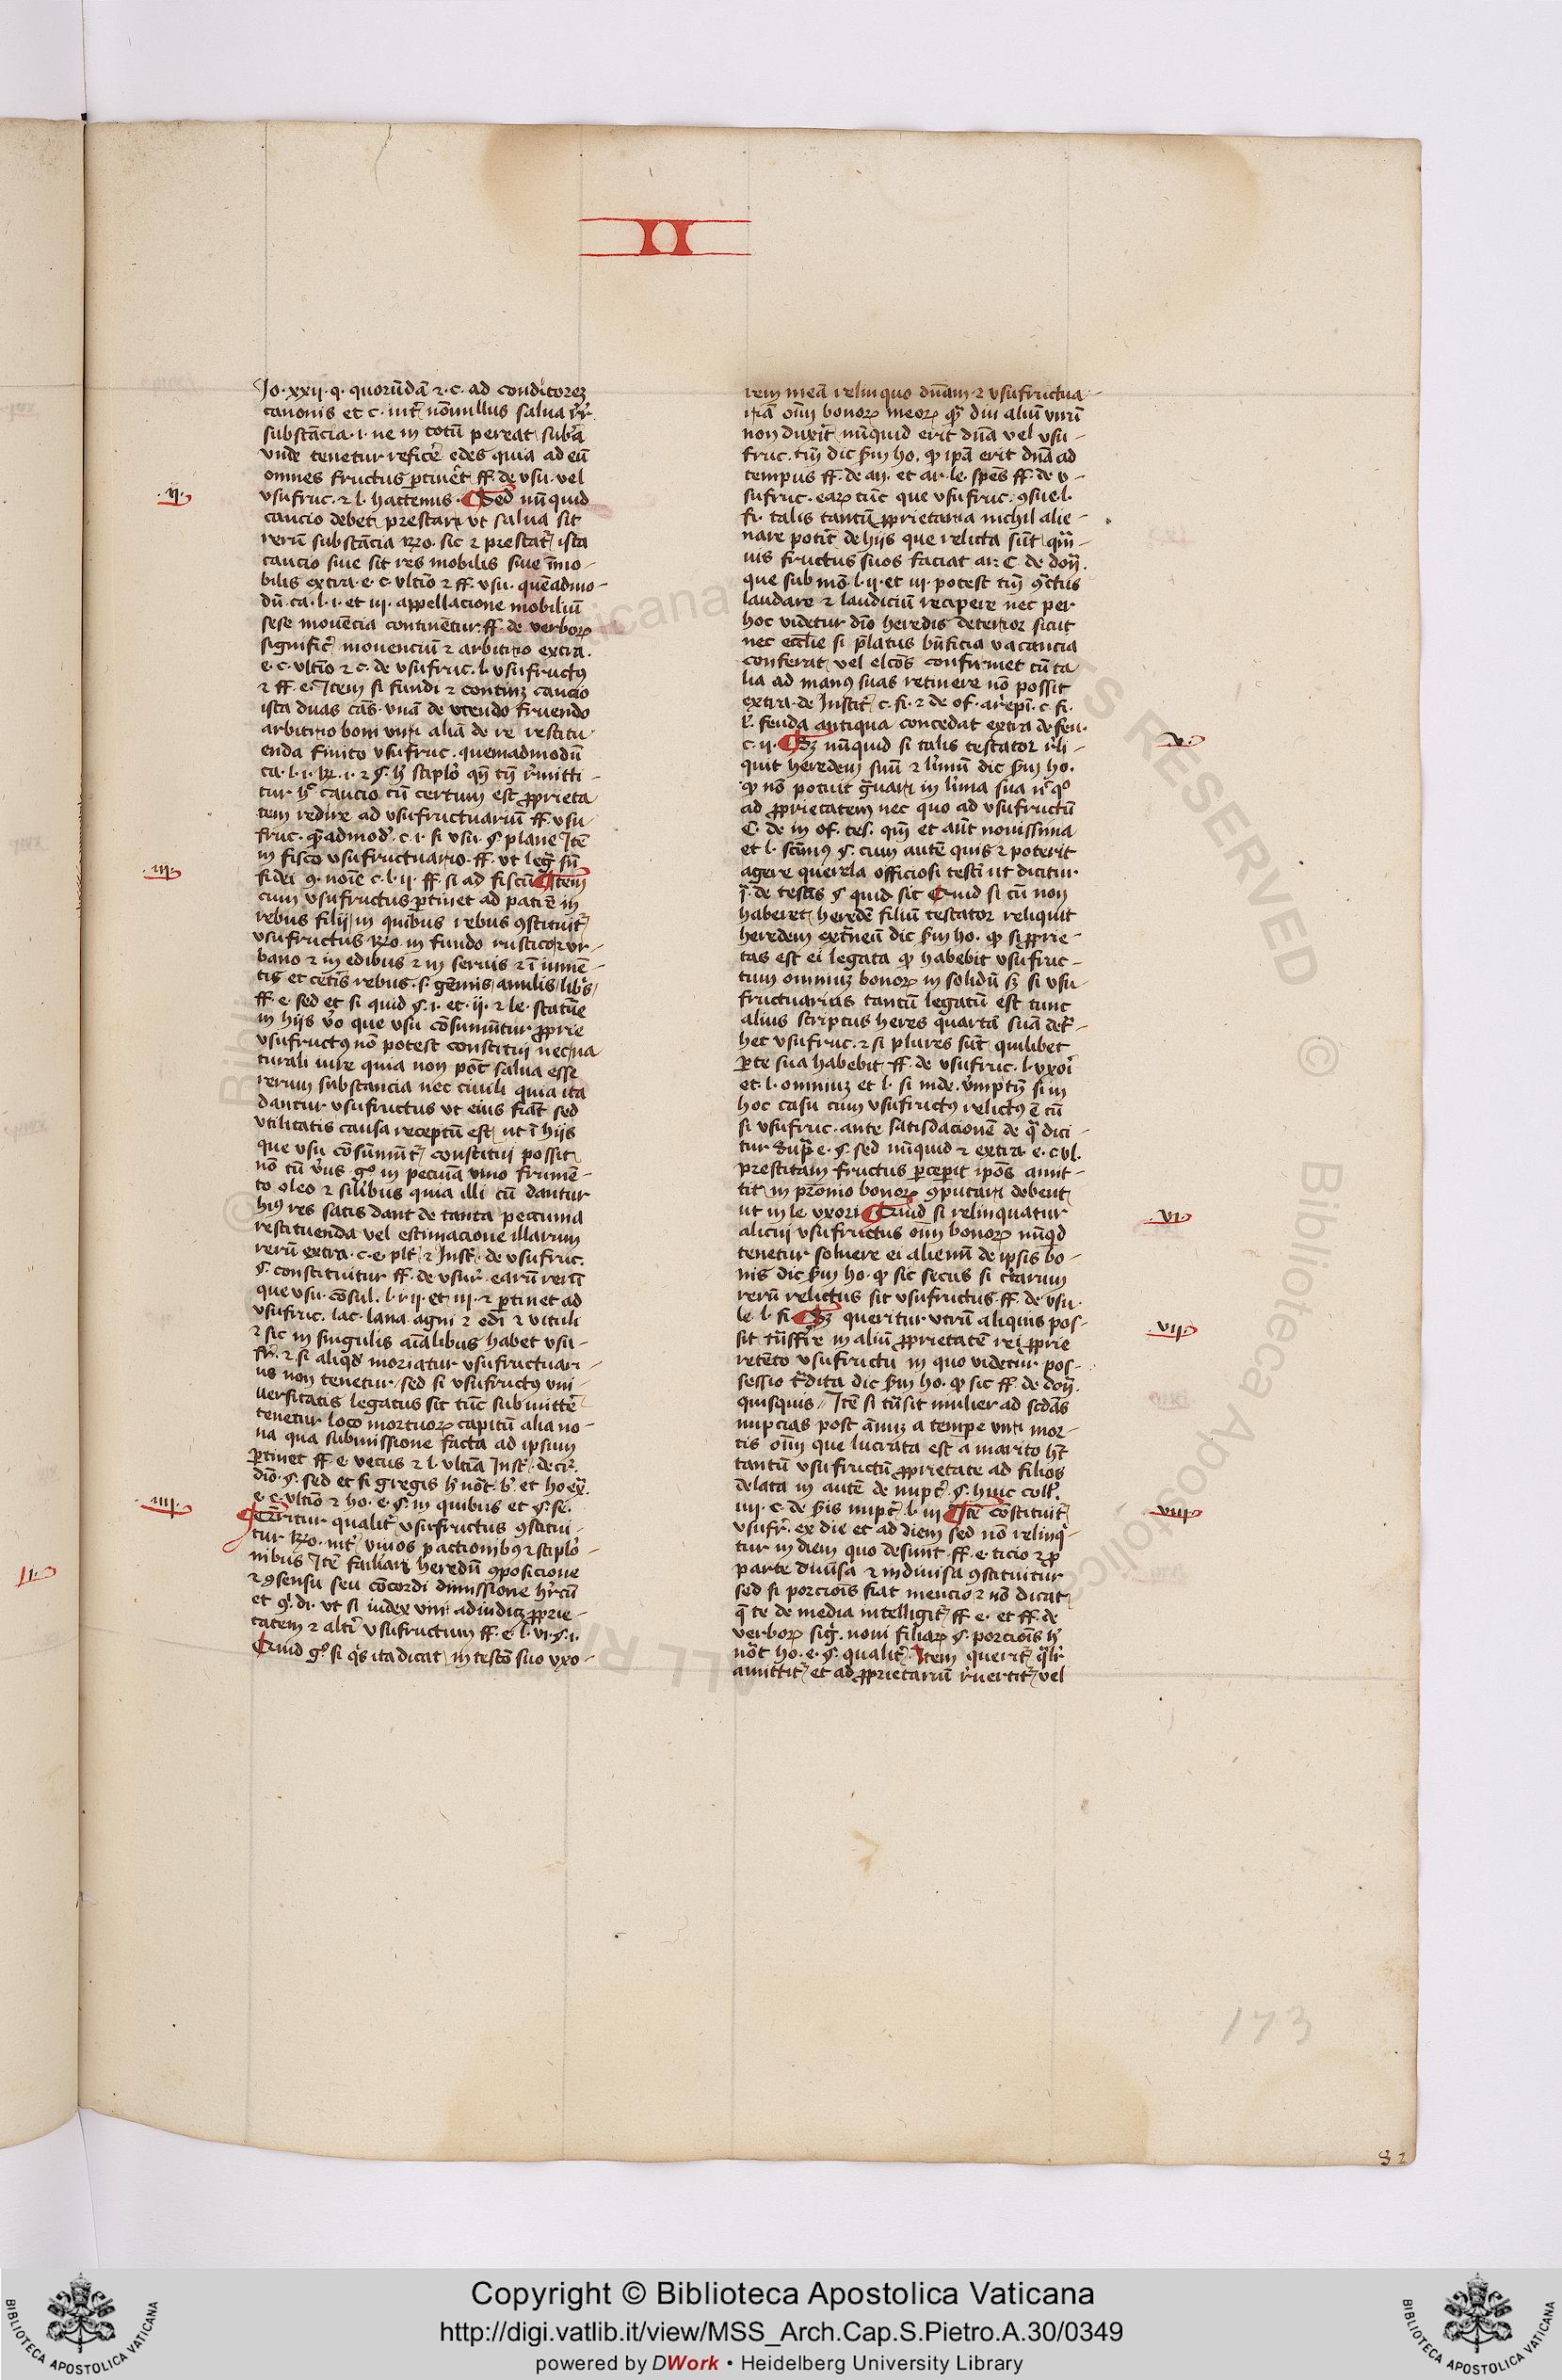 II
Jo. xxii. q. quorūdā ⁊ c. ad conditorez
canonis et c. int̄ nōnullus salua rr̄
substācia .i. ne in totū pereat subā
vnde tenetur reficē edes quia ad eū
omnes fructus ꝑtinēt ff. de vsu. vel
.ij.
vsufruc. ⁊ l. hactenus. Sed nūquid
caucio debet prestari vt salua sit
rerū substācia Rō. sic ⁊ prestat̄ ista
caucio siue sit res mobilis siue īmo-
bilis extra. e. c. vltīo ⁊ ff. vsu. quēadmo-
dū. ca. l. i. et iii. appellacione mobiliū
sese mouēcia continētur. ff. de verboꝝ
signific̄ mouenciū ⁊ arbitrio extra.
e. c. vltīo ⁊ c. de vsufruc. l. vsufructꝰ
⁊ ff. e. Item si fundi ⁊ continꝫ caucio
ista duas cās. vnā de vtendo fruendo
arbitrio boni viri aliā de re restitu
enda finito vsufruc. quemadmodū
tur hᵉ caucio cū certum est ꝓprieta
tem redire ad vsufructuariū ff. vsu
fruc. q̄admod̄. c. i. si vsu. §. plane Itē
in fisco vsufructuario. ff. vt leḡ sū
.iii.
fidei 9. noīe c. l. ii. ff. si ad fiscū Item
cum vsufructus ꝑtinet ad patrē in
rebus filij in quibus rebus ꝯstituit̄
vsufructus Rō. in fundo rustico ⁊ vr-
bano ⁊ in edibus ⁊ in seruis ⁊ ī iumē-
tis et cetis rebus. s. gēmis, anulis, libs,
ff. e. sed et si quid §. i. et. ii. ⁊ le. statūe
in hijs v̄o que vsu cōsumūtur ꝓprie
vsufructꝰ nō potest constitui nec na
turali iure quia non pōt salua esse
rerum substancia nec ciuili quia ita
dantur vsufructus vt eius fiāt sed
vtilitatis causa receptū est, ut ī hijs
que vsu cōsūmūt̄, constitui possit
nō tū v̄us gᵒ in pecuīa vino frumē-
to oleo ⁊ silibus quia illi cū dantur
hiꝰ res satis dant de tanta peccunia
restituenda vel estimacione illarum
rerū extra. c. e. plt̄ ⁊ Inst̄. de vsufruc.
§. constituitur ff. de vsur̄. earū rerū
que vsu. cōsul. l. i. ii. et iii. ⁊ ꝑtinet ad
vsufruc. lac. lana agni ⁊ edi ⁊ vituli
⁊ sic in singulis aīalibus habet vsu-
fr̄. ⁊ si aliqd moriatur vsufructuari-
us non tenetur, sed si vsufructꝰ vni-
uersitatis legatus sit tūc submittē
tenetur loco mortuoꝝ capitū alia no-
ua qua submissione facta ad ipsum
ꝑtinet ff. e. vetus ⁊ l. vltīa Inst̄. de rr̄.
diō. §. sed et si gregis h nōt. b. et hoẽꝝ.
.iiii.
e. c. vltīo ⁊ ho. e. §. in quibus et §. se.
Queritur qualit̄ vsufructus ꝯstitui-
tur Rō. int̄ viuos pactionibꝰ ⁊ stiplō-
nibus Itē familiari heredū ꝯposicione
⁊ ꝯsensu seu cōcordi dimissione hr̄cū
et ꝯ. di. vt si iudex vni adiudicꝫ ꝓprie-
tatem ⁊ alti vsufructum ff. e. l. vi. §. i.
Quid gᵒ si qs ita dicat, in testō suo vxo-
rem meā relinquo dn̄am ⁊ vsufructua
riā oīm bonoꝝ meoꝝ qᵃ diu aliū virū
non duxit̄ nūquid erit dn̄a vel vsu-
fruc. tn̄ dic ẜm ho. ꝙ ipā erit dn̄ā ad
tempus ff. de an. et ar. le. spēs ff. de v-
sufruc. earꝝ tūc que vsufruc. ꝯsue. l.
fi. talis tantū ꝓprietaria nichil alie-
nare potīt de hijs que relicta sūt qm̄-
uis fructus suos faciat ar. C. de don̄.
que sub mō l. ii. et iii. potest tn̄ 9ctus
laudare ⁊ laudiciū recipere nec per
hoc videtur dīo heredis deterior sicut
nec ecclie si p̄latus bn̄ficia vacancia
conferat, vel elcōs confirmet cū ta
lia ad manꝰ suas retinere nō possit
extra. de Instit̄ c. fi. ⁊ de of. ar̄epi. c. fi.
l̄. feuda antiqua concedat extra de feu.
.v.
c. ii. Sꝫ nūquid si talis testator rli-
quit heredem suū ⁊ l̄imū dic ẜm ho.
ꝙ nō potuit gᵃuari in l̄ima sua nᶜ qᵒ
ad ꝓprietatem nec quo ad vsufructū
C. de in of. tes. qm̄ et aūt nouissima
et l. scimꝰ §. cum autē quis ⁊ poterit
agere querela officiosi testi ut dicitur
ī. de testis § quid sic Quid si cū non
haberet, heredē filiū testator reliquit
heredem extᵃneū dic ẜm ho. ꝙ si ꝓprie-
tas est ei legata ꝙ habebit vsufruc-
tum omniuꝫ bonoꝝ in solidū sꝫ si vsu
fructuarias tantū legatū est tunc
alius scriptus heres quartā suā det̄-
het vsufruc. ⁊ si plures sūt quilibet
ꝑte sua habebit ff. de vsufruc. l. vxoī
et. l. omniuꝫ et l. si inde. v̄mptū si in
hoc casu cum vsufructꝰ relictꝰ ē cū
si vsufruc. ante satisdacionē de qᵃ dici-
tur supᵃ e. §. sed nūquid ⁊ extra. e. c. vl.
prestitam fructus ꝑceperit ipōs amit-
tit, in pr̄onio bonoꝝ ꝯputari debent
.vi.
ut in le vxori Quid si relinquatur
alicui vsufructus oīm bonoꝝ nūqd
tenetur soluere ei alienū de ipsis bo-
nis dic ẜm ho. ꝙ sic secus si c̄tarum
rerū relictus sit vsufructus. ff. de vsu.
.vii.
le. l. fi. Sꝫ queritur vtrū aliquis pos-
sit tn̄sfr̄e in aliū ꝓprietatē rei ꝓprie
retēto vsufructu in quo videtur pos-
sessio tᵃdita dic ẜm ho. ꝙ sic ff. de don̄.
quisquis. Itē si tn̄sit mulier ad scdās
nupcias post ānuꝫ a tempe viri mor-
tis oīm que lucrata est a marito ht̄
tantū vsufructū ꝓprietate ad filios
delata in autē de nupc̄. §. huic coll̄.
.viii.
iiii. c. de ẜis nupc̄. l. iii Itē cōstituit̄
vsufr̄. ex die et ad diem sed nō relinq̄-
tur in diem quo desunt. ff. e. ticio ⁊ ꝓ
parte diuisa ⁊ indiuisa ꝯstituitur
sed si porciōis fiat mencio ⁊ nō dicat,
q̄ te de media intelligit̄ ff. e. et ff. de
verboꝝ sig̃. noui filiaꝝ §. porciōis h
nōt ho. e. §. qualit̄. Item querit̄ qlr̄
amittit̄ et ad ꝓprietariū r̄uertit̄ vel
173
82
Copyright © Biblioteca Apostolica Vaticana
http://digi.vatlib.it/view/MSS_Arch.Cap.S.Pietro.A.30/0349
powered by DWork • Heidelberg University Library
BIBLIOTECA APOSTOLICA VATICANA
BIBLIOTECA APOSTOLICA VATICANA